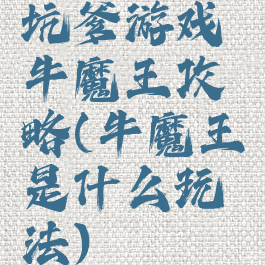 坑爹游戏
牛魔王攻
略(牛魔王
是什么玩
法)